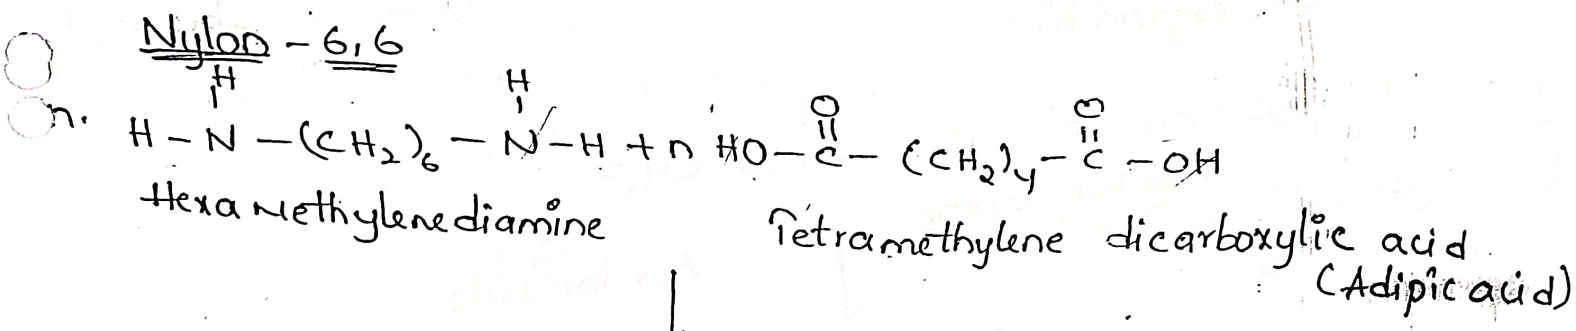 Nylon - 6,6
H H O O
n. H - N - (CH2)6 - N - H + n HO - C - (CH2)4 - C - OH
Hexamethylenediamine Tetramethylene dicarboxylic acid
(Adipic acid)